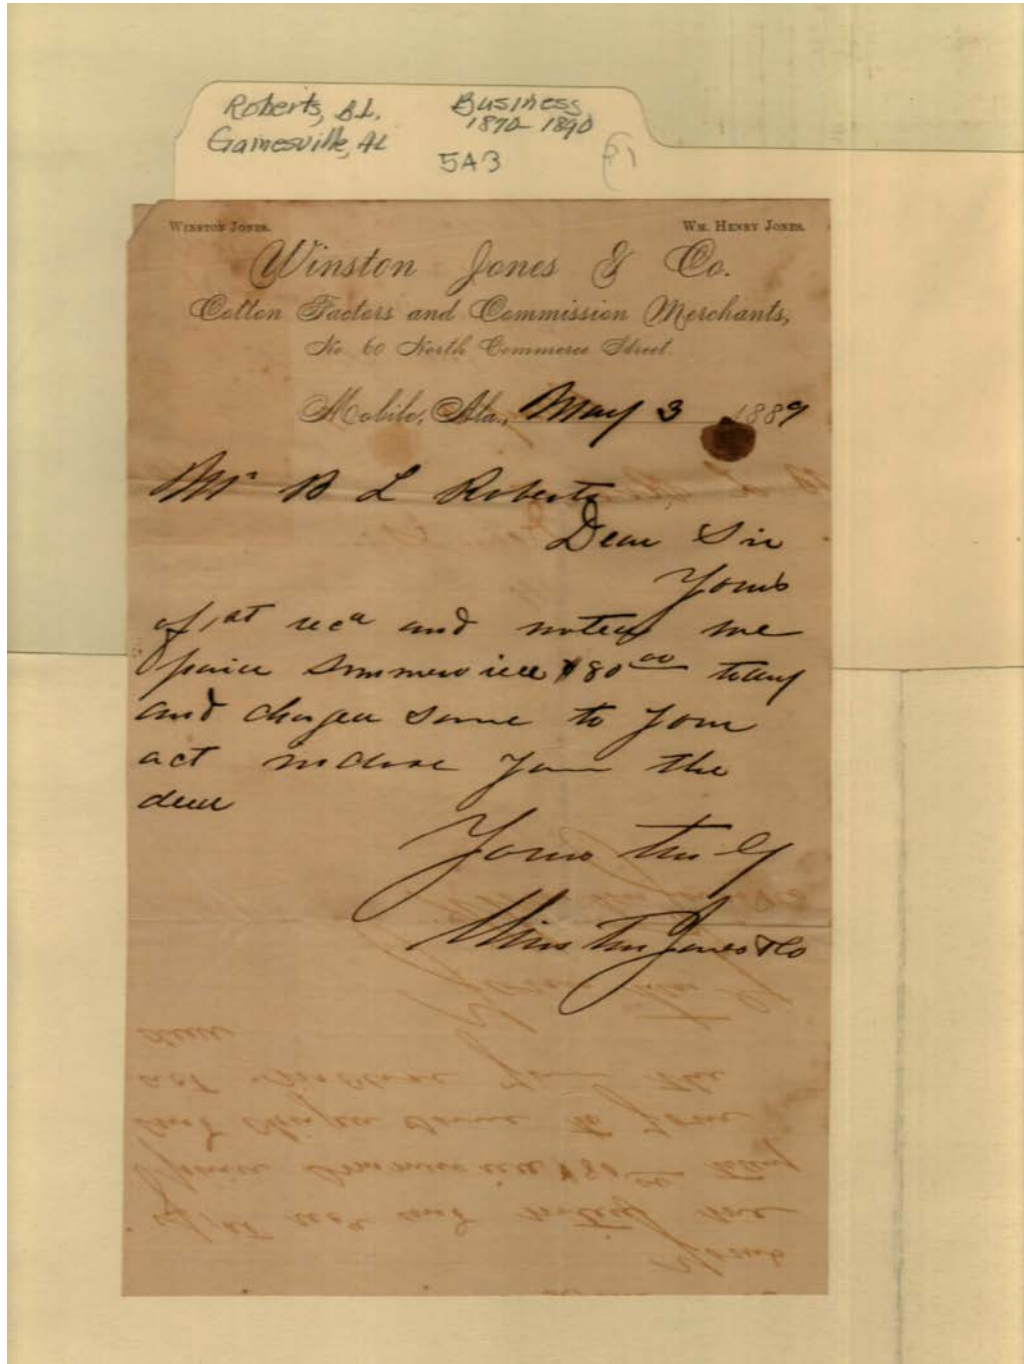 Roberts, B.L. Business
1870-1890
Gainesville, AL
5A3
Winston Jones. Wm. Henry Jones.
Winston Jones & Co.
Cotton Factors and Commission Merchants,
No. 60 North Commerce Street.
Mobile, Ala., May 3 1889
Mr B L Roberts
Dear Sir
Yours
of 1st recd and noted we
paid Summerville $80 00 today
and charged same to your
act inclose you the
Yours truly
Winston Jones & Co